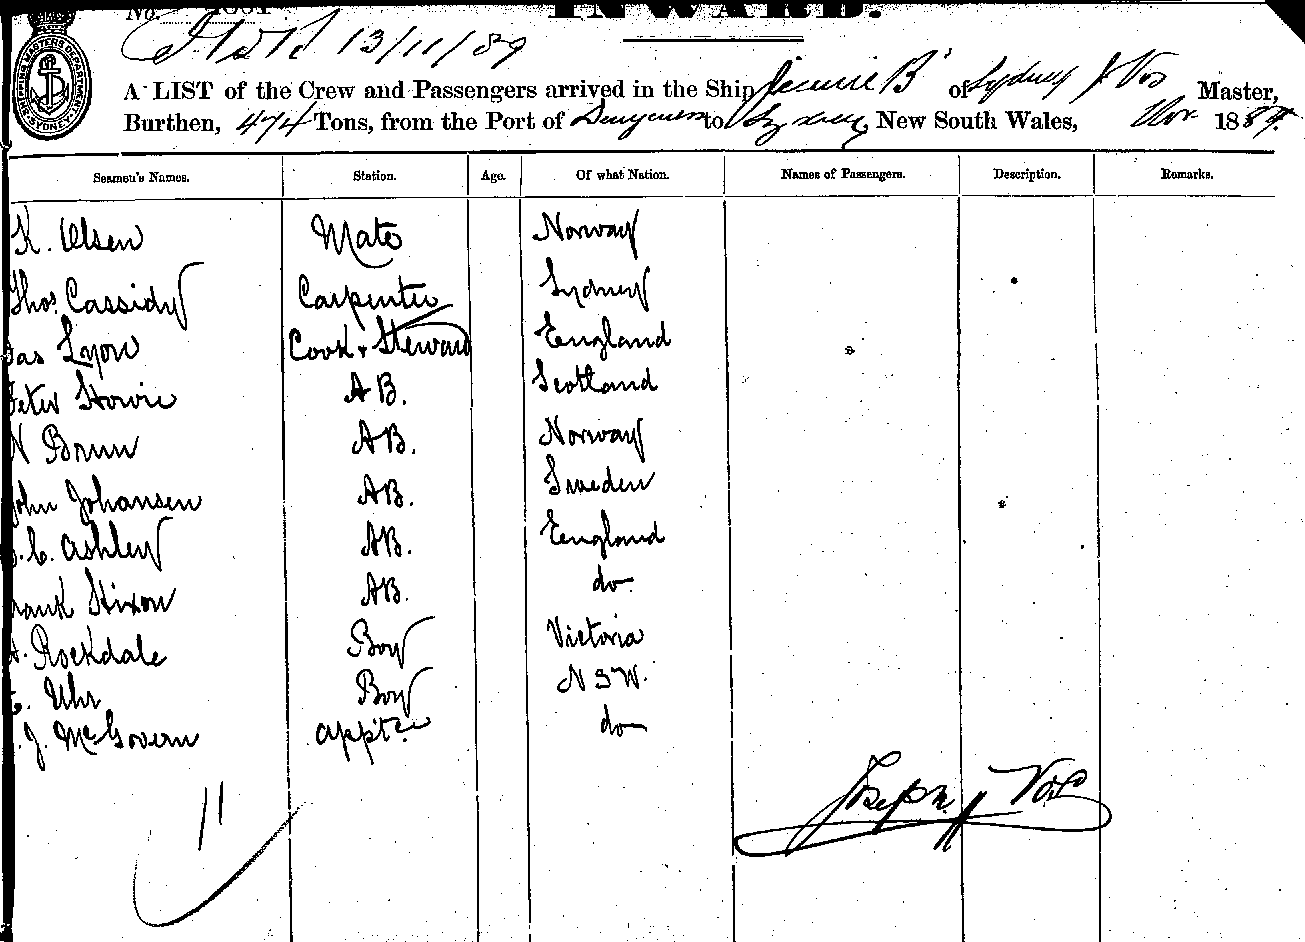 No.
INWARD.
13/11/89
SHIPPING MASTERS DEPARTMENT SYDNEY
A LIST of the Crew and Passengers arrived in the Ship Jennie B of Sydney J Vos Master,
Burthen, 474 Tons, from the Port of to Sydney, New South Wales, Nov 1889.
Seamen's Names. Station. Age. Of what Nation. Names of Passengers. Description. Remarks.
K. Olsen Mate Norway
Thos. Cassidy Carpenter Sydney
Jas Lyon Cook & Steward England
Peter Howie A B. Scotland
N Brun AB. Norway
John Johansen AB. Sweden
C. Ashley AB. England
Frank Hixon AB. do
Rockdale Boy Victoria
Uhr Boy N S W.
J. McGovern appt.ce do
Joseph Vos
11